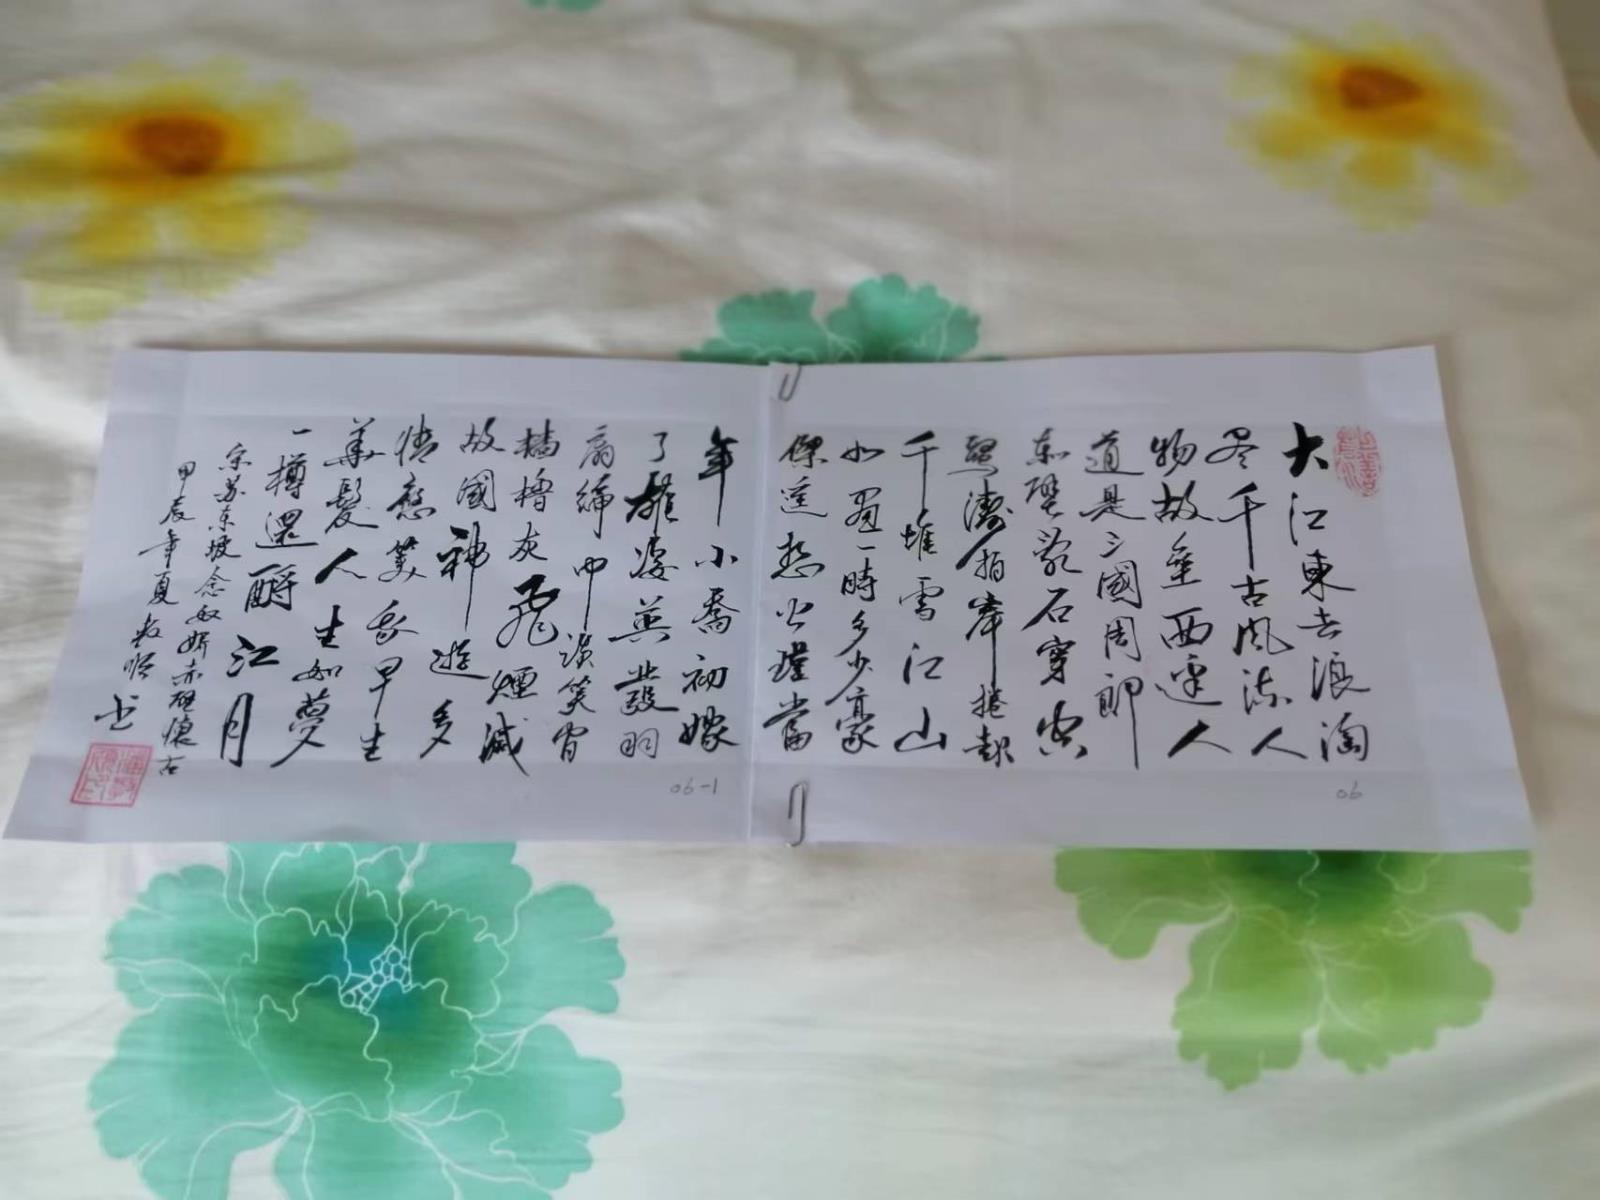 大江東去浪淘
尽千古風流人
物故壘西邊人
道是三國周郎
赤壁亂石穿空
驚濤拍岸捲起
千堆雪江山
如畫一時多少豪
傑遥想公瑾當
06
年小喬初嫁
了雄姿英發羽
扇綸巾談笑間
檣櫓灰飛煙滅
故國神遊多
情應笑我早生
華髮人生如夢
一樽還酹江月
宋苏东坡念奴娇赤壁懷古
甲辰年夏教顺书
06-1